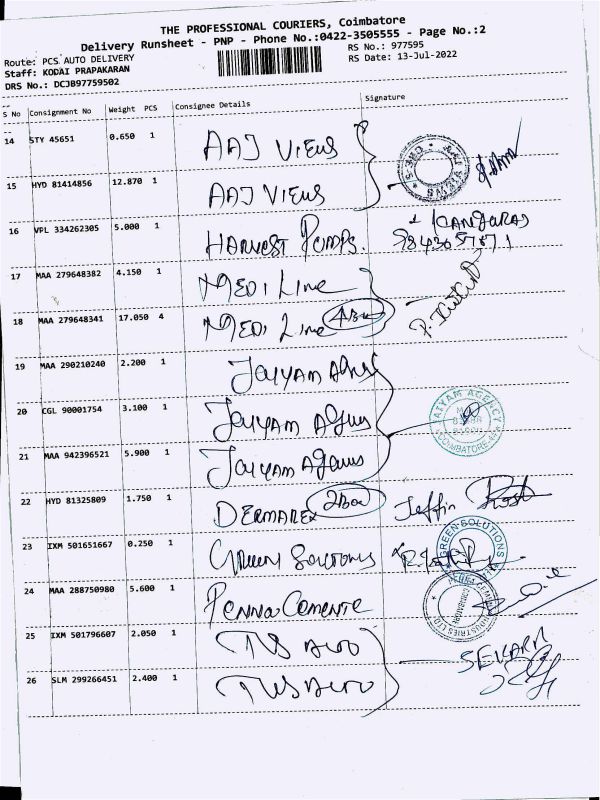 THE PROFESSIONAL COURIERS, Coimbatore
Delivery Runsheet - PNP - Phone No.:0422-3505555 - Page No.:2
Route: PCS AUTO DELIVERY
RS No.: 977595
Staff: KODAI PRAPAKARAN
RS Date: 13-Jul-2022
DRS No.: DCJB97759502
S No Consignment No Weight PCS Consignee Details Signature
14 STY 45651 0.650 1 AAJ VIEWS
15 HYD 81414856 12.870 1 AAJ VIEWS
16 VPL 334262305 5.000 1 HARVEST PUMPS.
17 MAA 279648382 4.150 1 MEDI Line
18 MAA 279648341 17.050 4 MEDI Line
19 MAA 290210240 2.200 1 JAIYAM
20 CGL 90001754 3.100 1 JAIYAM
21 MAA 942396521 5.900 1 JAIYAM
22 HYD 81325809 1.750 1 DERMAREX Jeffin
23 IXM 501651667 0.250 1 Green Solutions GREEN SOLUTIONS
24 MAA 288750980 5.600 1 Penna Cemente
25 IXM 501796607 2.050 1 TVS Auto
SEKARAN
26 SLM 299266451 2.400 1 TVS Auto